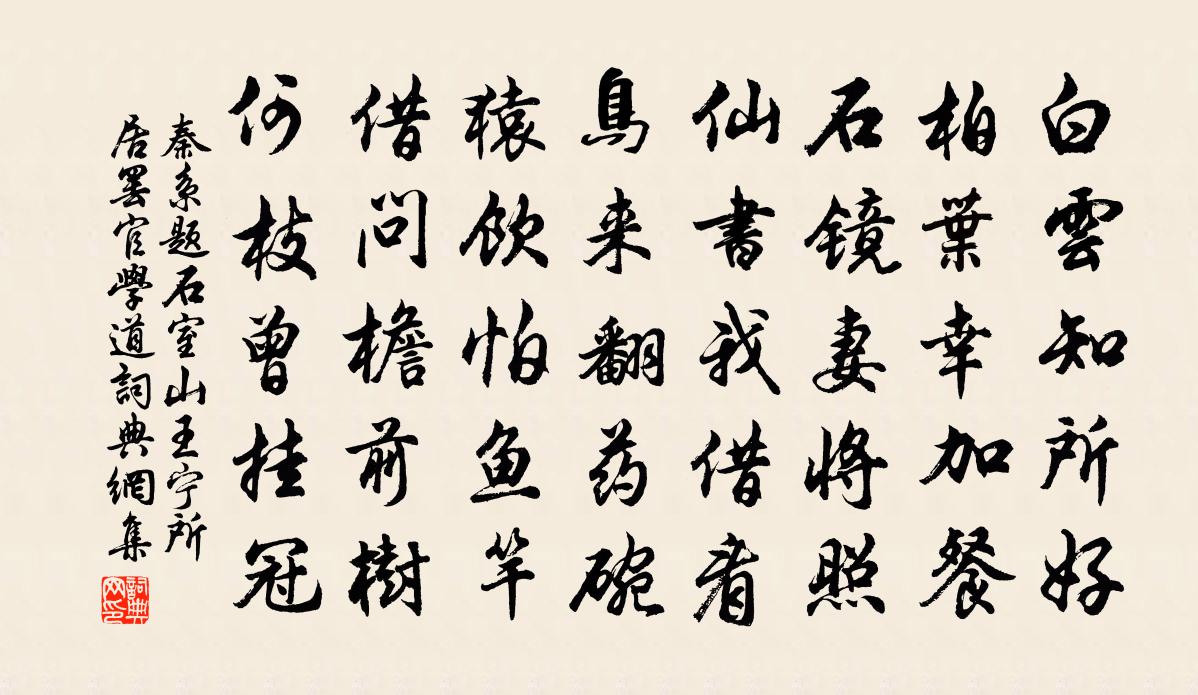 白雲知所好
柏葉幸加餐
石镜妻将照
仙書我借看
鳥来翻药碗
猿飲怕魚竿
借問檐前樹
何枝曾挂冠
秦系题石室山王宁所
居罢官學道詞典網集
詞典
网印